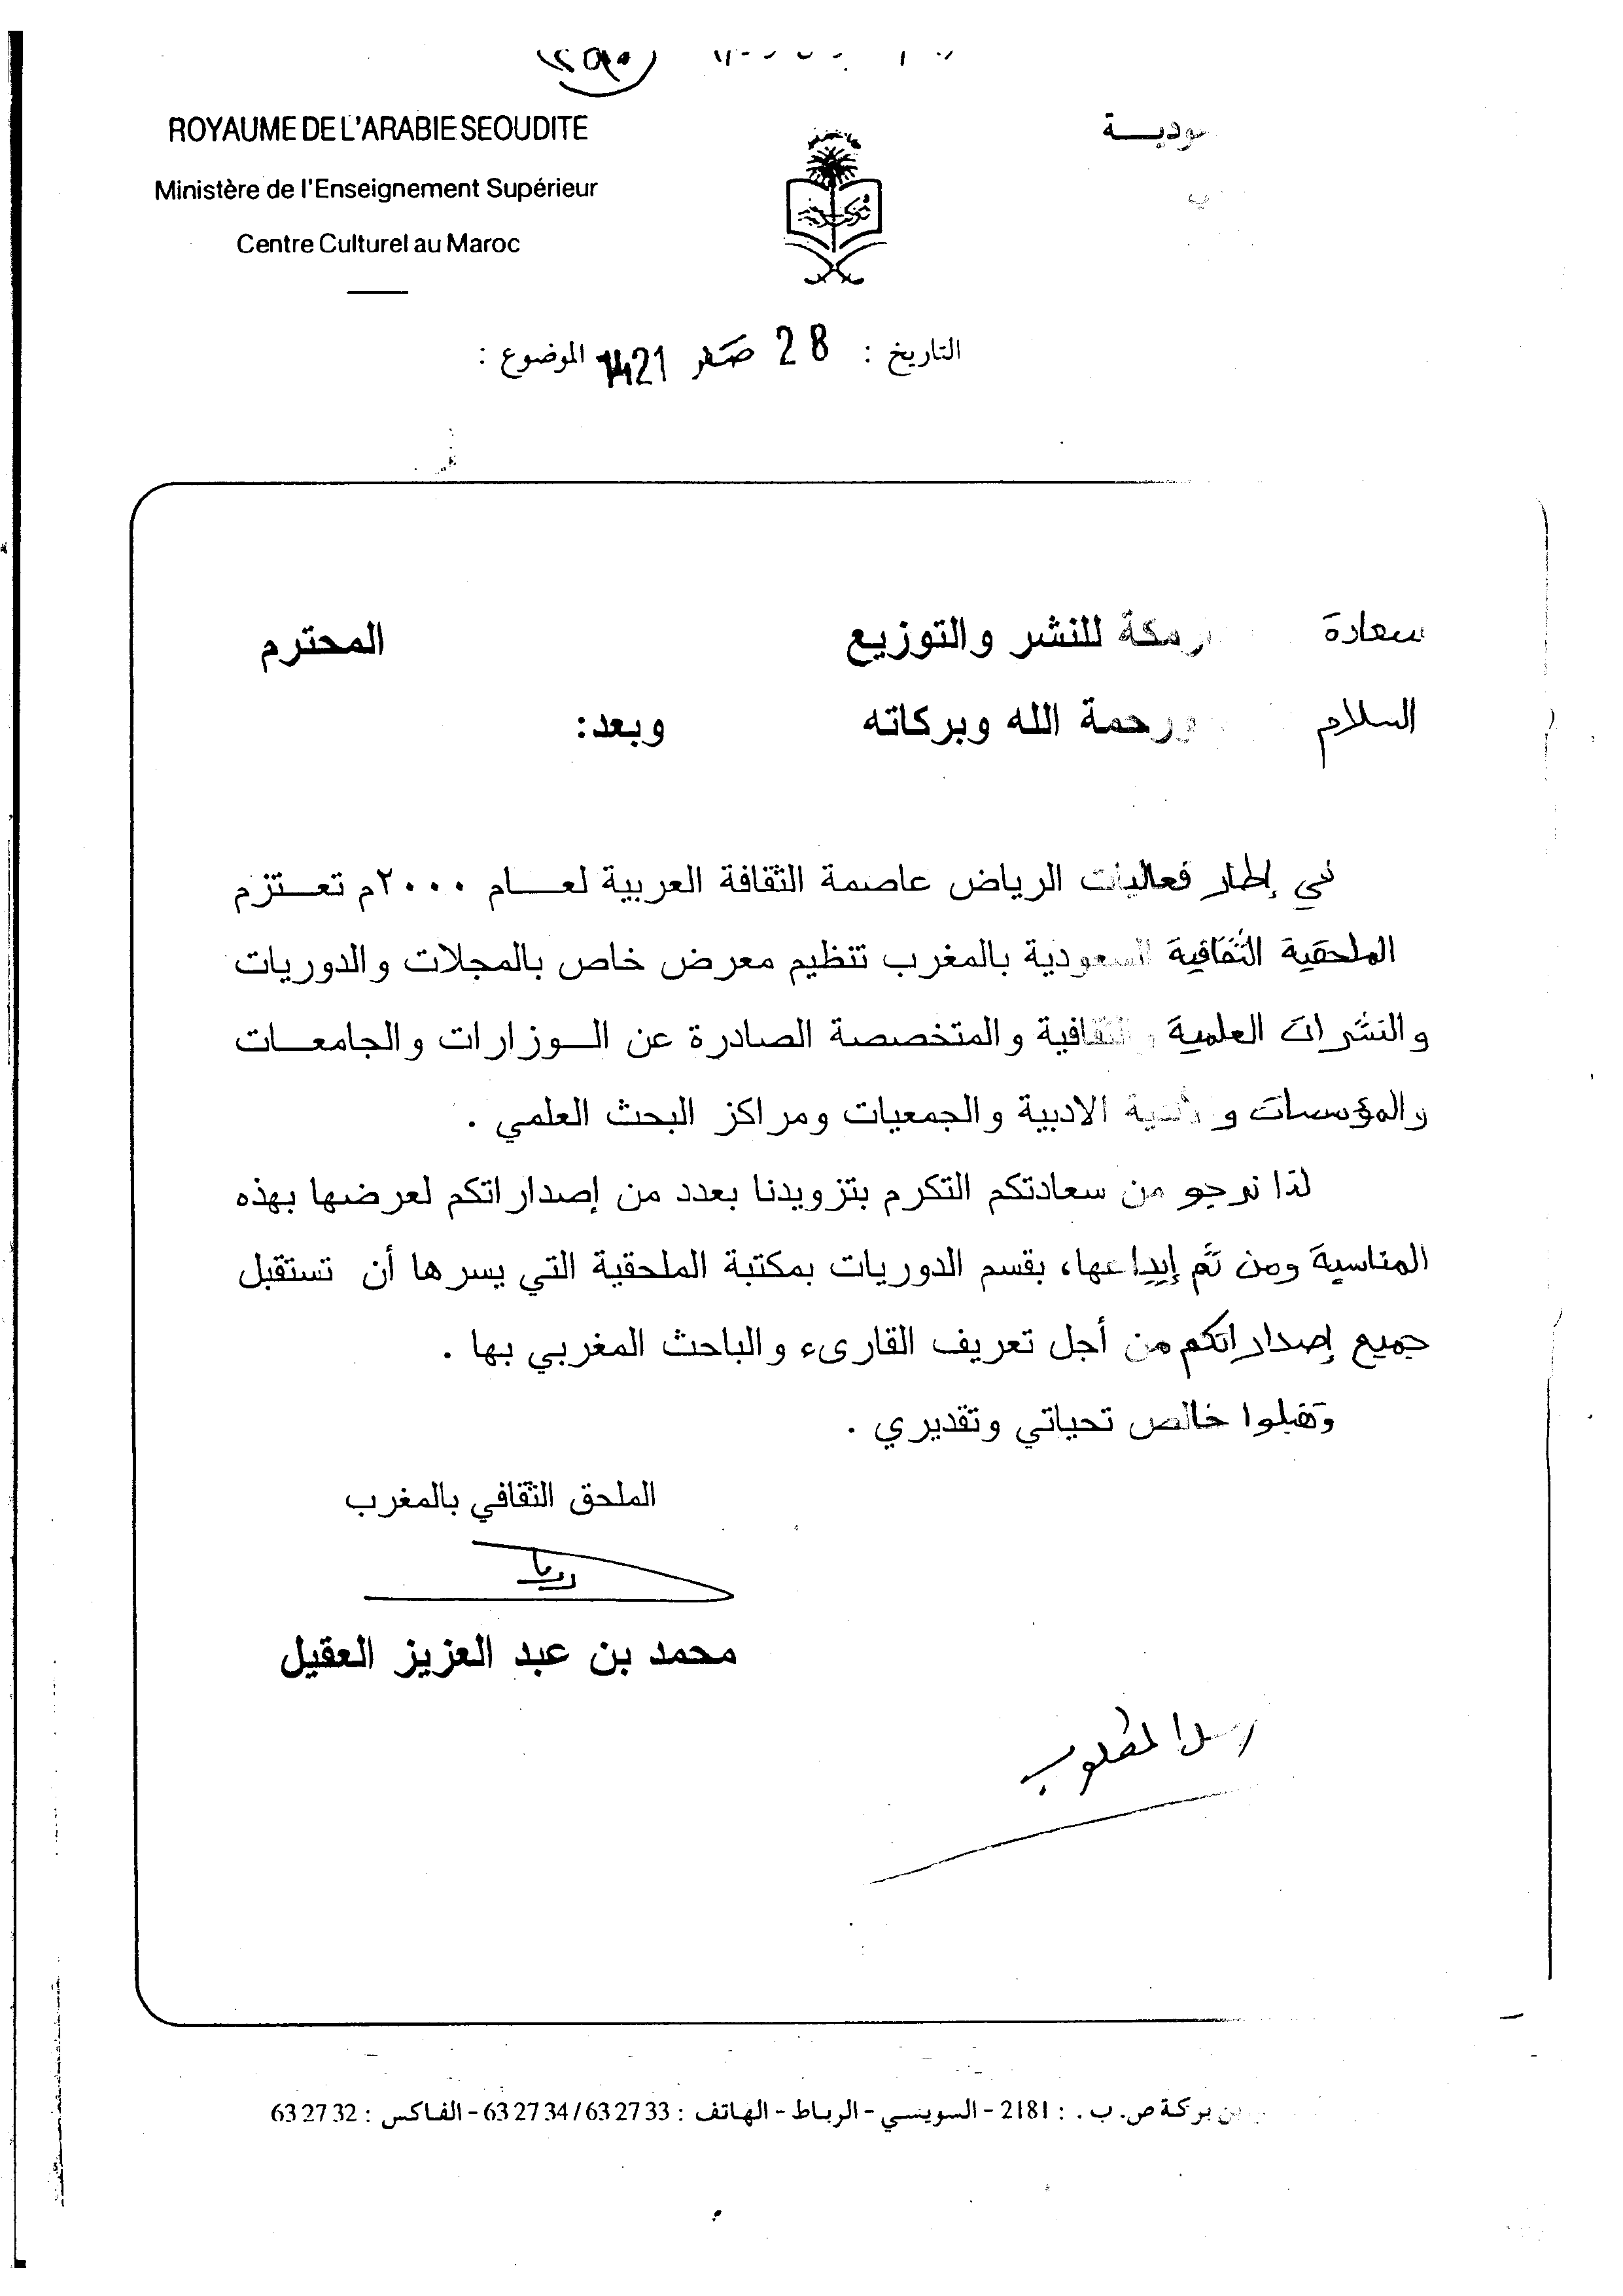 ROYAUME DE L'ARABIE SEOUDITE
Ministère de l'Enseignement Supérieur
Centre Culturel au Maroc
التاريخ : 28 صفر 1421 الموضوع :
سعادة مكة للنشر والتوزيع المحترم
السلام ورحمة الله وبركاته وبعد:
في إطار فعاليات الرياض عاصمة الثقافة العربية لعـــام ٢٠٠٠م تعـتزم
الملحقية الثقافية السعودية بالمغرب تنظيم معرض خاص بالمجلات والدوريات
والنشرات العلمية والثقافية والمتخصصة الصادرة عن الـوزارات والجامعـات
والمؤسسات الادبية والجمعيات ومراكز البحث العلمي .
لذا نرجو من سعادتكم التكرم بتزويدنا بعدد من إصداراتكم لعرضها بهذه
المناسبة ومن ثم إيداعها، بقسم الدوريات بمكتبة الملحقية التي يسرها أن تستقبل
جميع إصداراتكم من أجل تعريف القارىء والباحث المغربي بها .
وتقبلوا خالص تحياتي وتقديري .
الملحق الثقافي بالمغرب
محمد بن عبد العزيز العقيل
المطلوب
بن بركة ص. ب. : 2181 - السويسي - الرباط - الهاتف : 632733/632734 - الفاكس : 632732